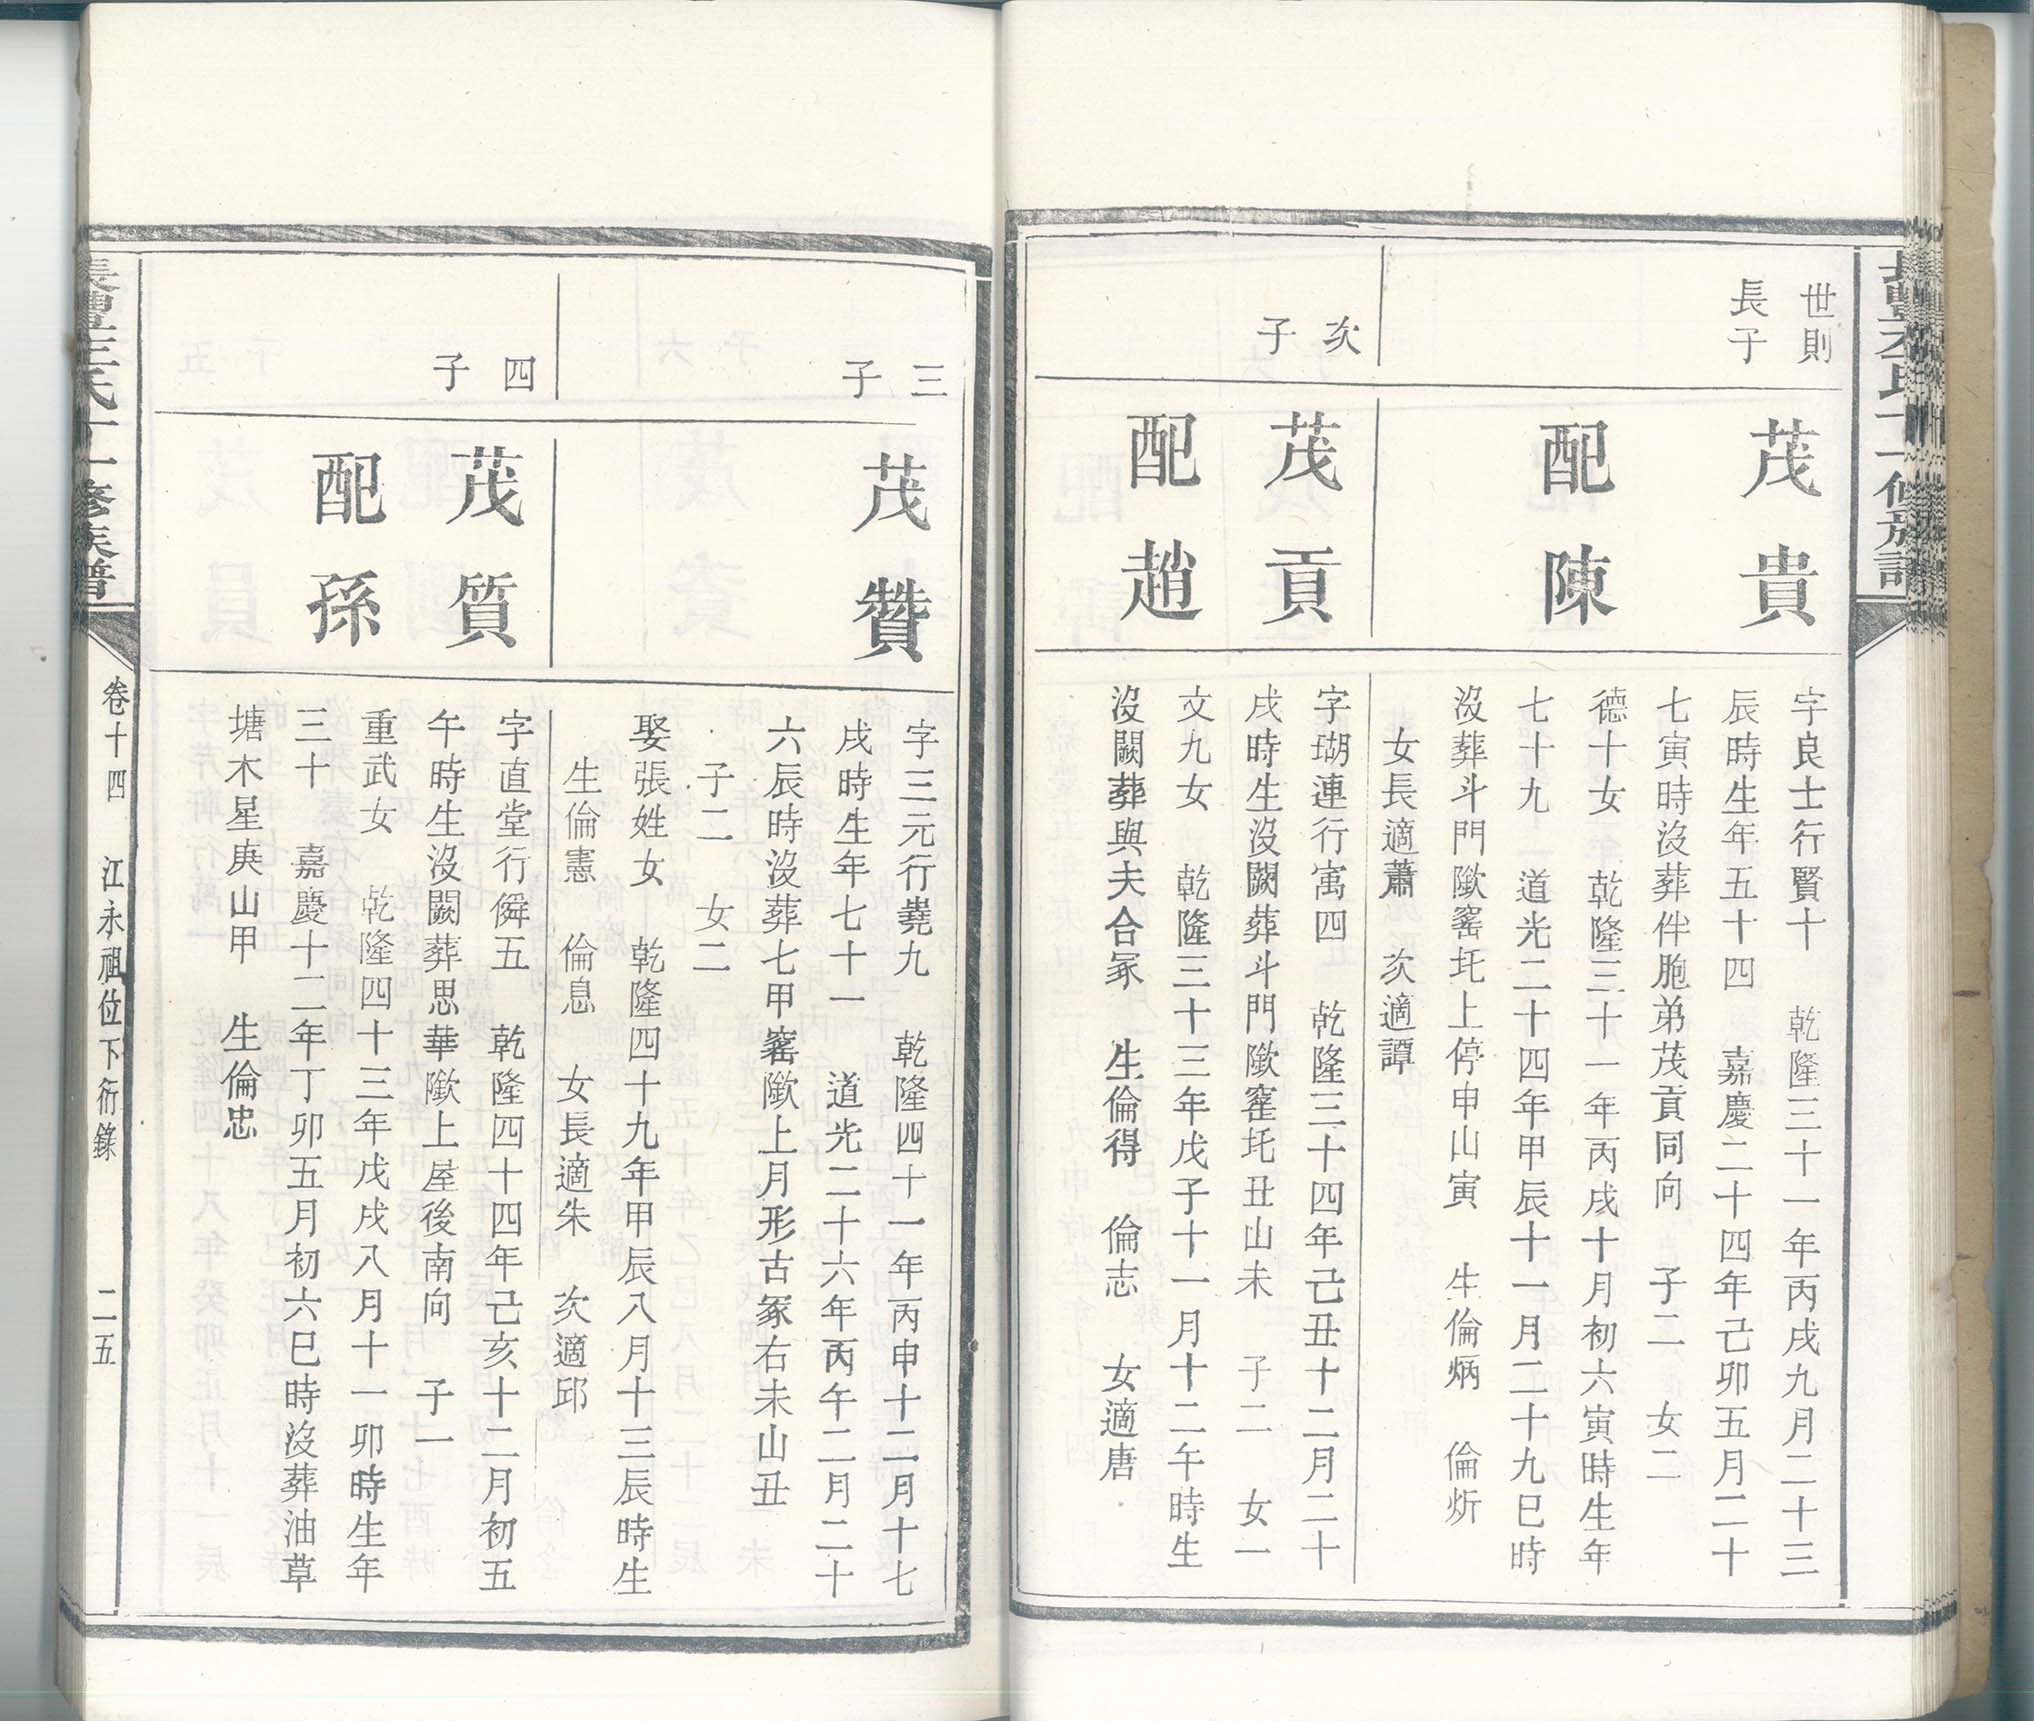 世則
長子
茂貴
字良士行賢十 乾隆三十一年丙戌九月二十三
辰時生年五十四 嘉慶二十四年己卯五月二十
七寅時沒葬伴胞弟茂貢同向 子二 女二
配陳
德十女 乾隆三十一年丙戌十月初六寅時生年
七十九 道光二十四年甲辰十一月二十九巳時
沒葬斗門歘窰圫上停申山寅 生倫炳 倫炘
女長適蕭 次適譚
次
子
茂貢
字瑚連行寓四 乾隆三十四年己丑十二月二十
戌時生沒闕葬斗門歘窰圫丑山未 子二 女一
配趙
文九女 乾隆三十三年戊子十一月十二午時生
沒闕葬與夫合冢 生倫得 倫志 女適唐
三
子
茂贊
字三元行堯九 乾隆四十一年丙申十二月十七
戌時生年七十一 道光二十六年丙午二月二十
六辰時沒葬七甲窰歘上月形古冢右未山丑
子二 女二
娶張姓女 乾隆四十九年甲辰八月十三辰時生
生倫憲 倫息 女長適朱 次適邱
四
子
茂質
字直堂行僢五 乾隆四十四年己亥十二月初五
午時生沒闕葬思華歘上屋後南向 子一
配孫
重武女 乾隆四十三年戊戌八月十一卯時生年
三十 嘉慶十二年丁卯五月初六巳時沒葬油草
塘木星庚山甲 生倫忠
卷十四 江永祖位下衍錄 二五